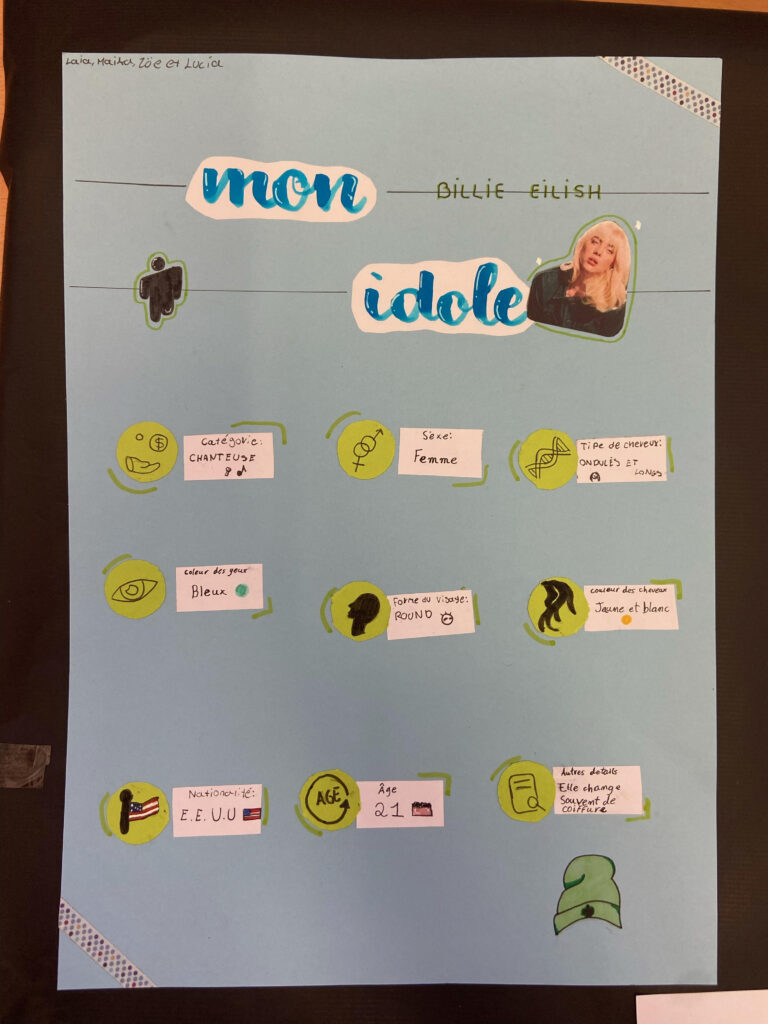 Laia, Maiha, Zöe et Lucia
mon
BILLIE EILISH
idole
$
Catégorie:
CHANTEUSE
Sexe:
Femme
Tipe de cheveux:
ONDULÉS ET
LONGS
Coleur des yeux
Bleux
Forme du Visage:
ROUND
Couleur des cheveux
Jaune et blanc
Nationalité:
E.E.U.U
AGE
Âge
21
Autres details
Elle change
Souvent de
coiffure